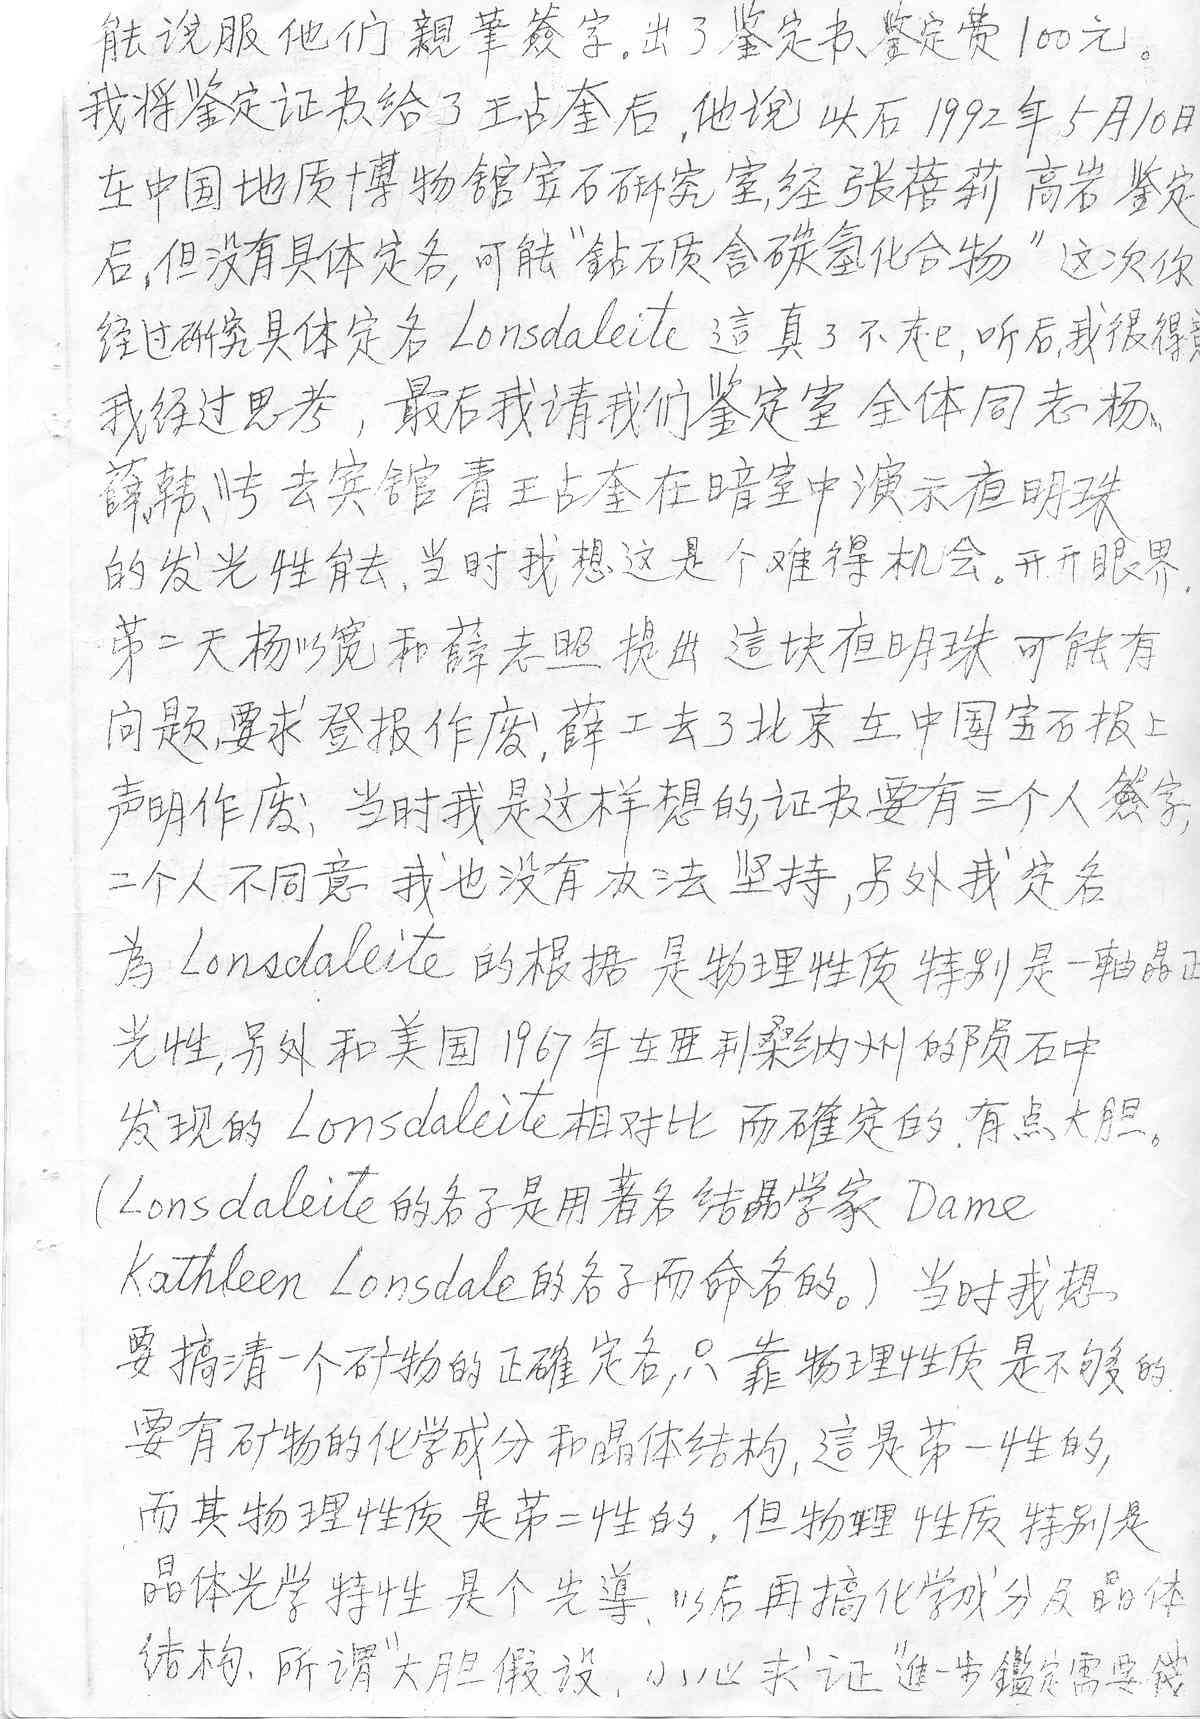 能说服他们親筆簽字。出了鉴定书、鉴定费100元。
我将鉴定证书给了王占奎后,他说以后1992年5月10日
在中国地质博物馆宝石研究室,经张蓓莉 高岩 鉴定
后,但没有具体定名,可能"鉆石质含碳氢化合物"这次你
经过研究具体定名Lonsdaleite 這真了不起,听后,我很得意
我经过思考,最后我请我们鉴定室全体同志杨、
薛、韩、去宾馆看王占奎在暗室中演示夜明珠
的发光性能,当时我想这是个难得机会。开开眼界.
第二天杨以宽和薛志照提出這块夜明珠可能有
问题,要求登报作废,薛工去了北京在中国宝石报上
声明作废,当时我是这样想的,证书要有三个人簽字,
二个人不同意我也没有办法坚持,另外我定名
為Lonsdaleite的根据是物理性质特别是一軸晶正
光性,另外和美国1967年在亚利桑纳州的陨石中
发现的Lonsdaleite相对比而確定的.有点大胆。
(Lonsdaleite的名子是用著名结晶学家 Dame
Kathleen Lonsdale的名子而命名的。)当时我想.
要搞清一个矿物的正確定名,只靠物理性质是不够的.
要有矿物的化学成分和晶体结构,這是第一性的,
而其物理性质是第二性的.但物理性质特别是
晶体光学特性是个先導、以后再搞化学成分及晶体
结构、所谓"大胆假设,小心求证"進一步鑑定需要